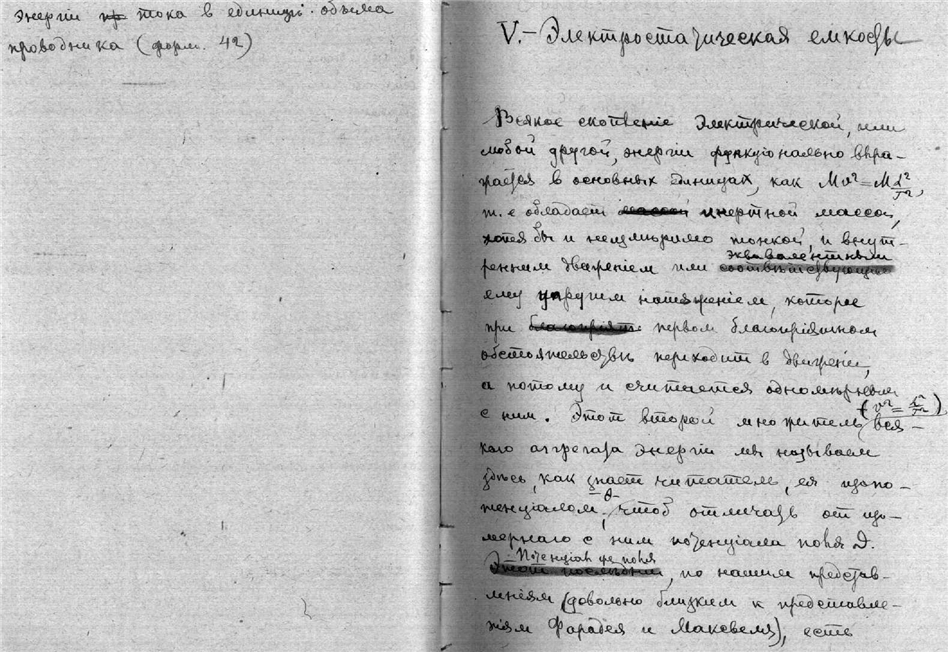 энергіи пр тока в единицѣ объема
проводника (форм. 42)
V.– Электростатическая емкость
Всякое скопленіе электрической, или
любой другой, энергіи функціонально выра-
жается в основных единицах, как Mv²=M L²/T²,
т. е обладает массой инертной массой,
хотя бы и неизмѣримо тонкой, и внут-
эквивалентным
ренним движеніем или соотвѣтствующим
ему упругим натяженіем, которое
при благопріятн первом благопріятном
обстоятельствѣ переходит в движеніе,
а потому и считается одномѣрным
с ним. Этот второй множитель (v² = L²/T²) вся-
каго аггрегата энергіи мы называем
здѣсь, как знает читатель, ея изопо-
тенціалом, – θ – чтоб отличать от изо-
мернаго с ним потенціала поля D.
Потенціал же поля
Этот послѣдній, по нашим представ-
леніям (довольно близким к представле-
ніям Фарадея и Максвеля), есть